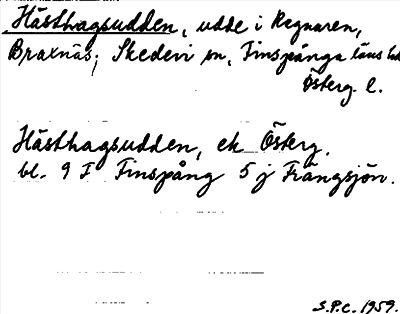 Hästhagsudden, udde i Regnaren,
Braxnäs, Skedevi sn, Finspånga läns hd
Österg. l.
Hästhagsudden, ek Österg.
bl. 9 F Finspång 5 j Frängsjön.
S.P.C. 1959.